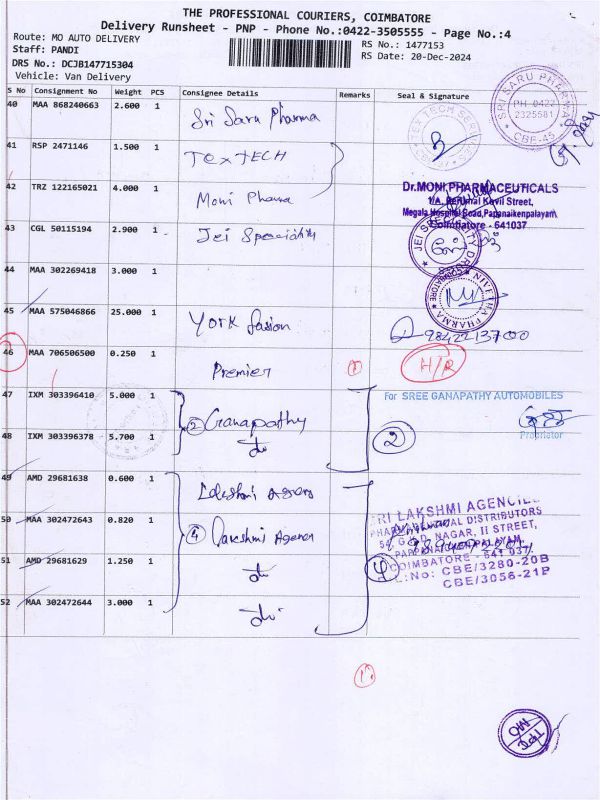 THE PROFESSIONAL COURIERS, COIMBATORE
Delivery Runsheet - PNP - Phone No.:0422-3505555 - Page No.:4
Route: MO AUTO DELIVERY
RS No.: 1477153
Staff: PANDI
RS Date: 20-Dec-2024
DRS No.: DCJB147715304
Vehicle: Van Delivery
S No Consignment No Weight PCS Consignee Details Remarks Seal & Signature
40 MAA 868240663 2.600 1 Sri Saru Pharma
SRI SARU PHARMA
PH 0422
2325581
CBE-45
TEX TECH
41 RSP 2471146 1.500 1 TEXTECH
42 TRZ 122165021 4.000 1 Moni Pharma
Dr.MONI PHARMACEUTICALS
1/A, Perumal Kovil Street,
Megala Hospital Road,Papanaikenpalayam,
Coimbatore - 641037
43 CGL 50115194 2.900 1 Jei Speciality
44 MAA 302269418 3.000 1
NIVETHA PHARMA
45 MAA 575046866 25.000 1 York fasion
9842213700
46 MAA 706506500 0.250 1 Premier 1 H/R
47 IXM 303396410 5.000 1 2 Ganapathy
For SREE GANAPATHY AUTOMOBILES
Proprietor
48 IXM 303396378 5.700 1 do 2
49 AMD 29681638 0.600 1 Lakshmi Agency
50 MAA 302472643 0.820 1 4 Lakshmi Agency
SRI LAKSHMI AGENCIES
DISTRIBUTORS
NAGAR, II STREET,
PAPPANAICKENPALAYAM,
COIMBATORE - 641 037
L:No: CBE/3280-20B
CBE/3056-21P
51 AMD 29681629 1.250 1 do 4
52 MAA 302472644 3.000 1 do